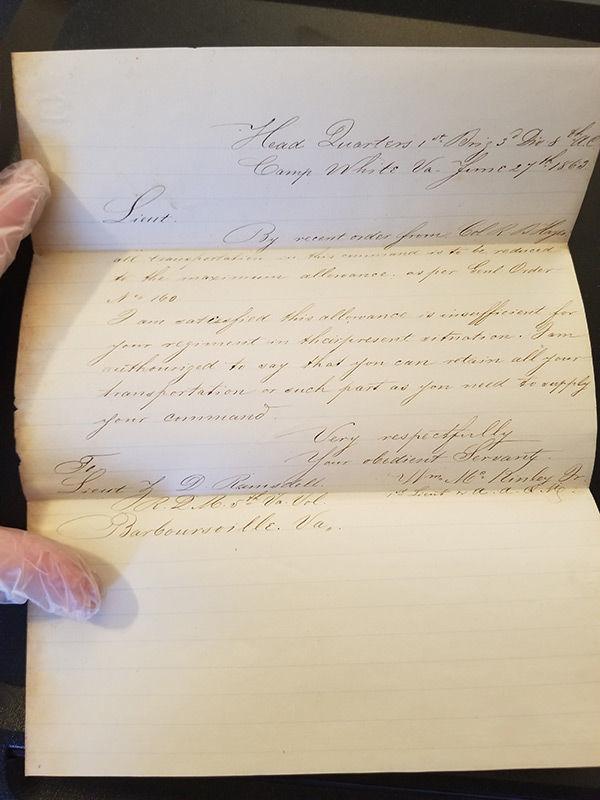 Head Quarters 1st Brig 3d Div 8th A.C.
Camp White Va. June 27th 1863.
Lieut.
By recent order from Col R. B. Hayes
all transportation in this command is to be reduced
to the maximum allowance. as per Genl Order
No 160
I am satisfied this allowance is insufficient for
your regiment in their present situation. I am
authourized to say that you can retain all your
transportation or such part as you need to supply
your command.
Very respectfully
Your obedient Servant.
Wm McKinley Jr.
1st Lieut & A. A. Q. M.
To
Lieut Z. D. Ramsdell
R. Q. M. 5th Va. Vol.
Barboursville. Va.